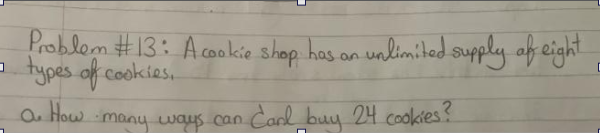 Problem #13: A cookie shop has an unlimited supply of eight
types of cookies.
a. How many ways can Carl buy 24 cookies?